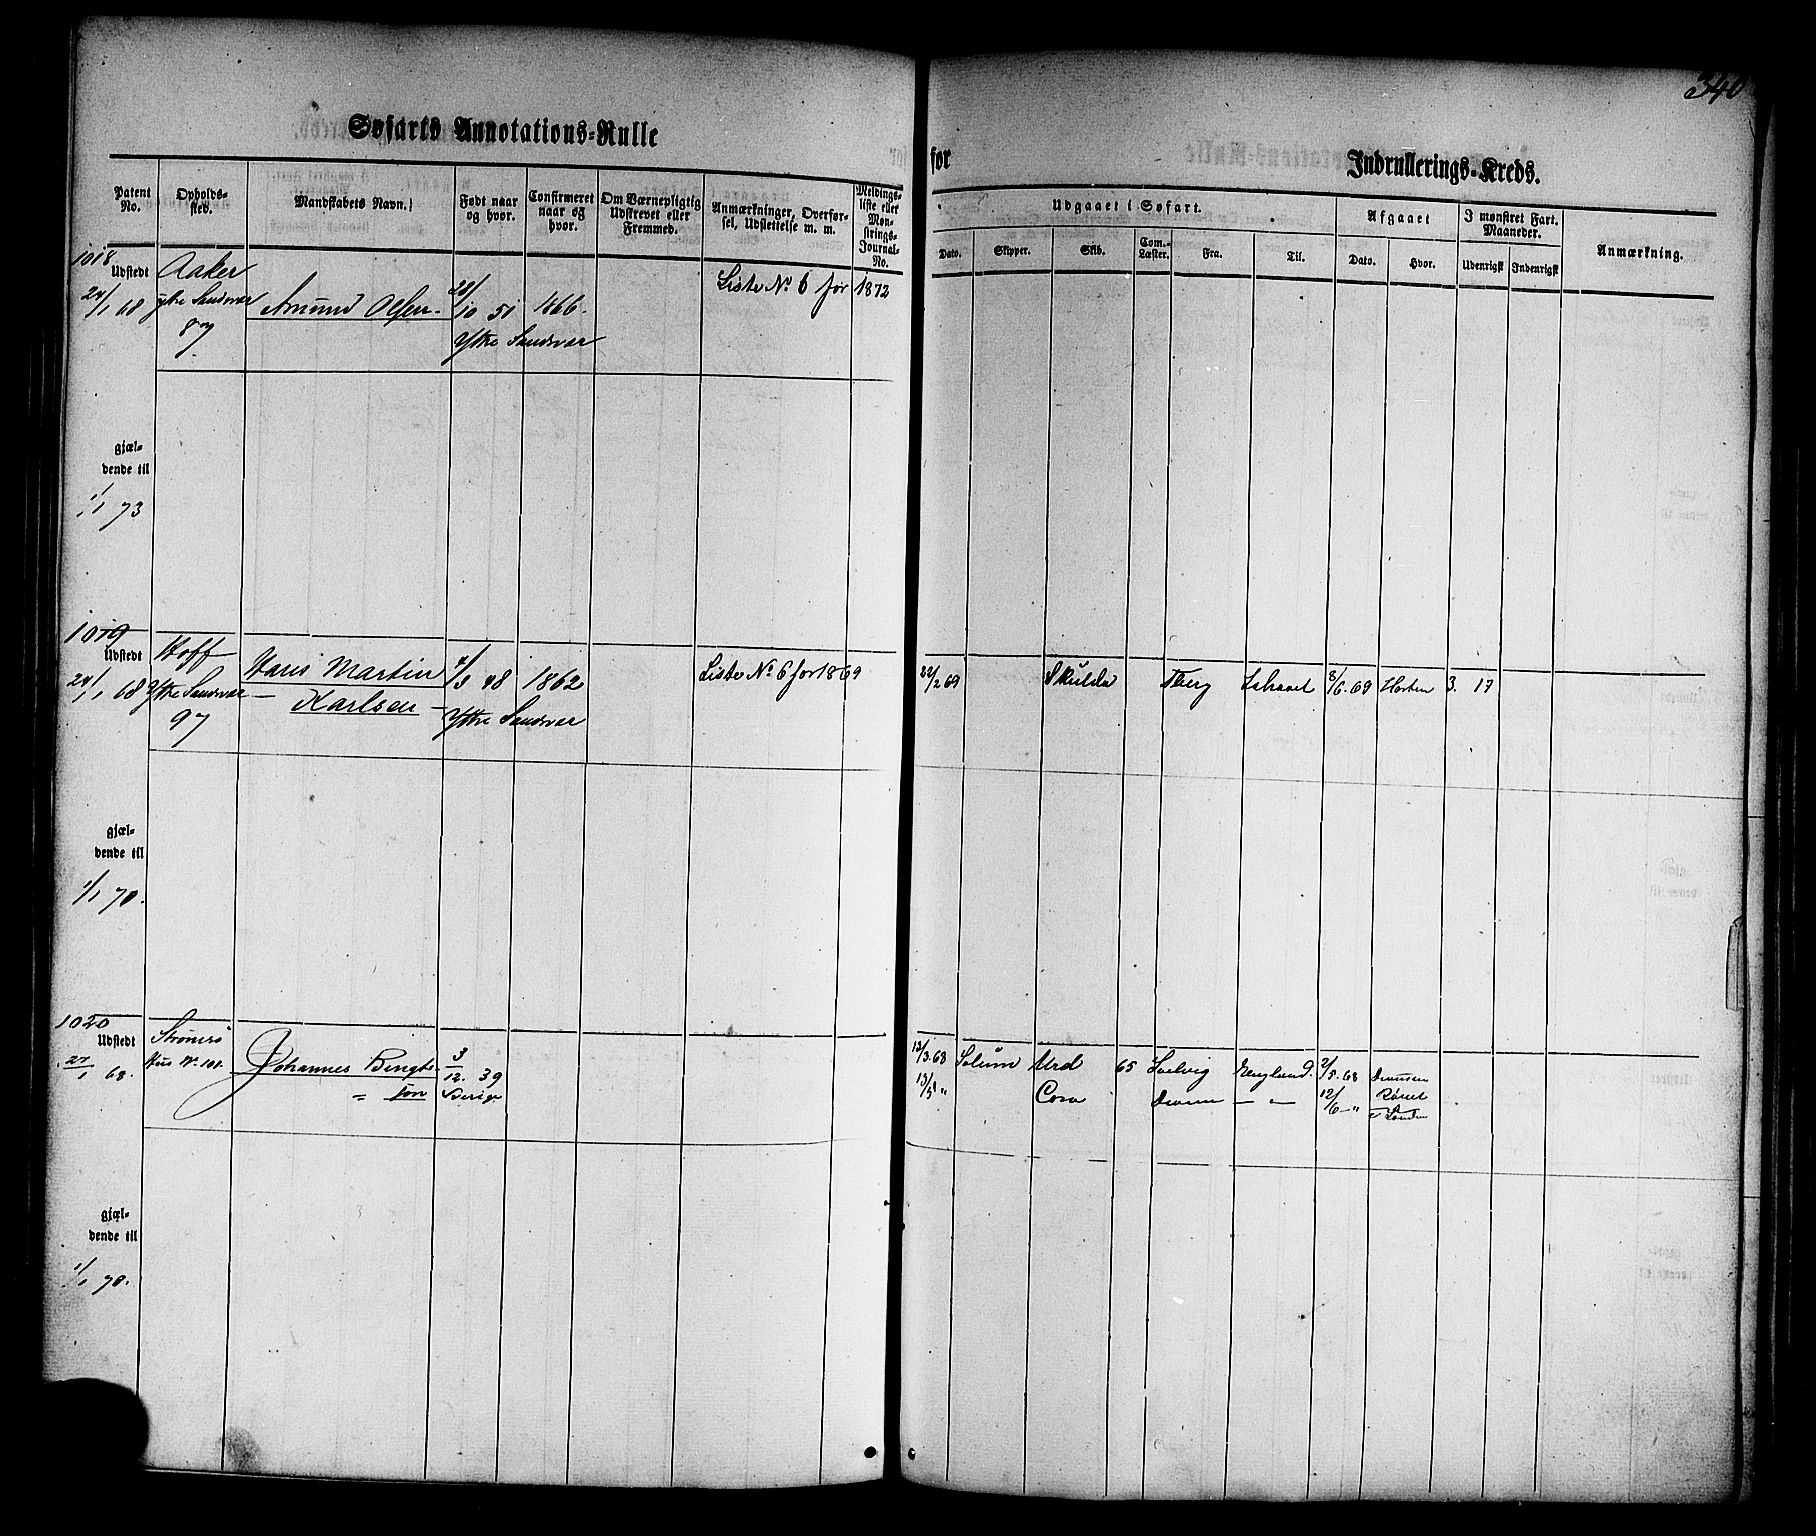 340
Søfarts Annotations-Rulle
for
Indrullerings-Kreds.
Patent No.
Opholds-sted.
Mandskabets Navn.
Født naar og hvor.
Confirmeret naar og hvor.
Om Værnepligtig Udskrevet eller Fremmed.
Anmærkninger, Overførsel, Udslettelse m. m.
Meldings-liste eller Mønstrings-Journal-No.
Udgaaet i Søfart.
Afgaaet
I mønstret Fart. Maaneder.
Anmærkning.
Dato.
Skipper.
Skib.
Com.-Læster.
Fra.
Til.
Dato.
Hvor.
Udenrigsk
Indenrigsk
1018
Udstedt
24/1 68
Aaker
ytre Sandsvær
87
Amund Olsen
10 51
1866.
Ytre Sandsvær
Liste No 6 for 1872
gjæl-
dende til
1/1 73
1019
Udstedt
24/1 68
Hoff
Ytre Sandsvær
97
Hans Martin
Karlsen
4/3 48
1862
Ytre Sandsvær
Liste No 6 for 1869
22/2 69
Skulda
Tberg
8/6. 69
Horten
3. 17
gjæl-
dende til
1/1 70.
1020
Udstedt
27/1 68.
Strømsø
Hus No. 101.
Johannes Bengt-
= son
3/12. 39
13/3. 68
Solum
Urd
65
Svelvig
England.
2/5. 68
Drammen
13/5 "
Cora
Dramm
— " —
12/6 — "
gjæl-
dende til
1/1 70.